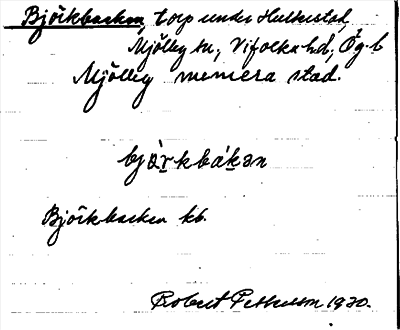 Björkbacken, torp under Hulterstad,
Mjölby sn., Vifolka hd, Ög. l.
Mjölby stad.
bjö̀rkbákən
Björkbacken kb.
Robert Pettersson 1930.